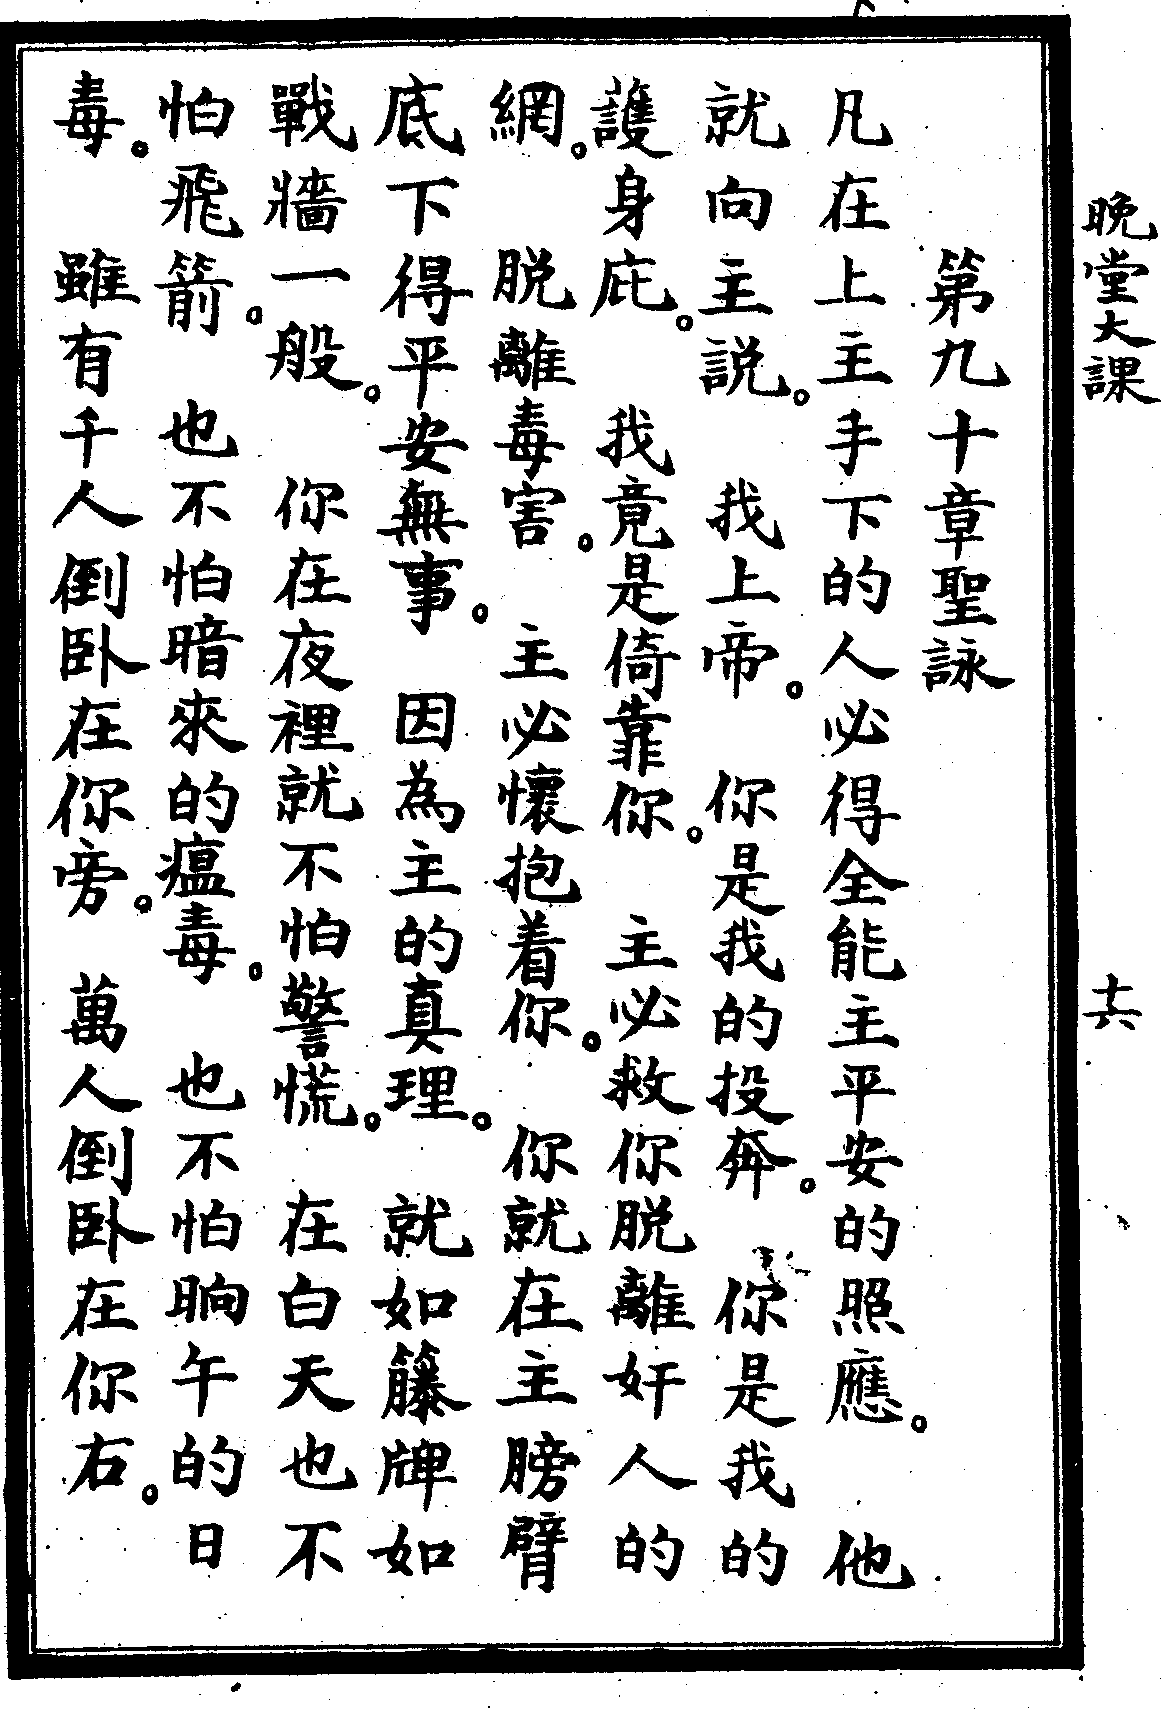 晚堂大課
十六
第九十章聖詠
凡在上主手下的人必得全能主平安的照應。他
就向主說。我上帝。你是我的投奔。你是我的
護身庇。我竟是倚靠你。主必救你脫離奸人的
網。脫離毒害。主必懷抱着你。你就在主膀臂
底下得平安無事。因為主的真理。就如籐牌如
戰牆一般。你在夜裡就不怕警慌。在白天也不
怕飛箭。也不怕暗來的瘟毒。也不怕晌午的日
毒。雖有千人倒卧在你旁。萬人倒卧在你右。